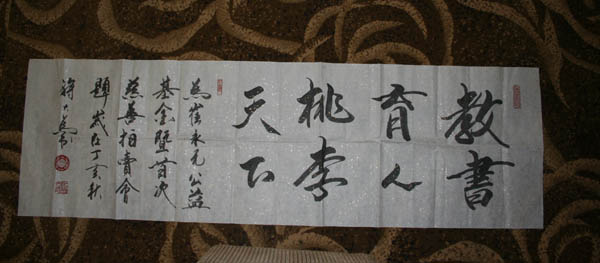 教書
育人
桃李
天下
為崔永元公益
基金暨首次
慈善拍賣會
題歲在丁亥秋
蔣大為